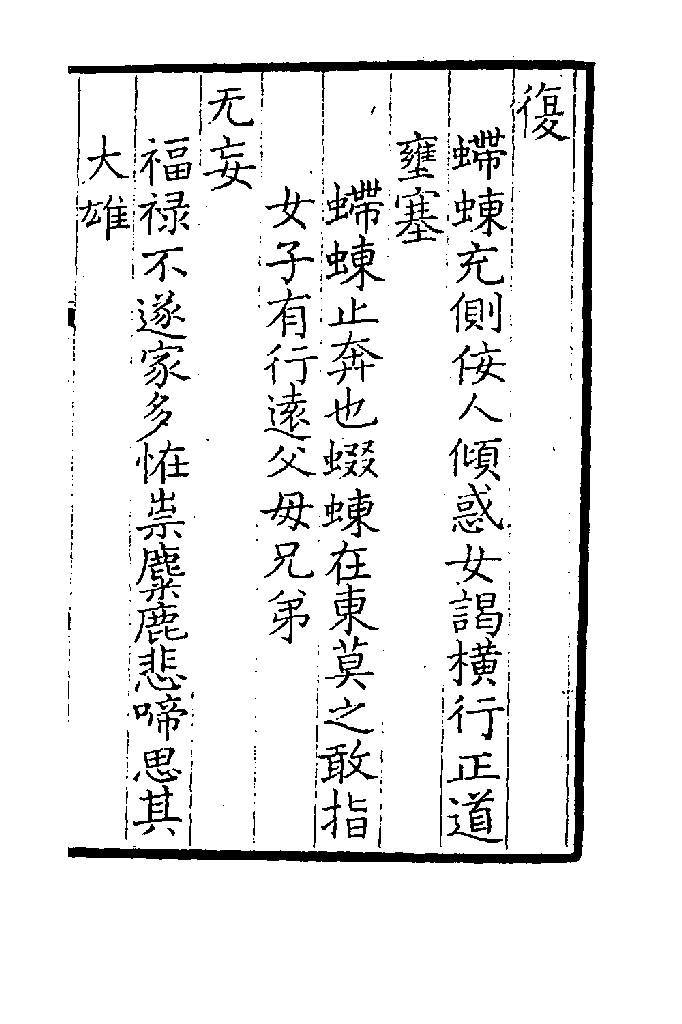 復
螮蝀充側佞人傾惑女謁橫行正道
壅塞
螮蝀止奔也蝃蝀在東莫之敢指
女子有行遠父母兄弟
无妄
福禄不遂家多恠祟麋鹿悲啼思其
大雄